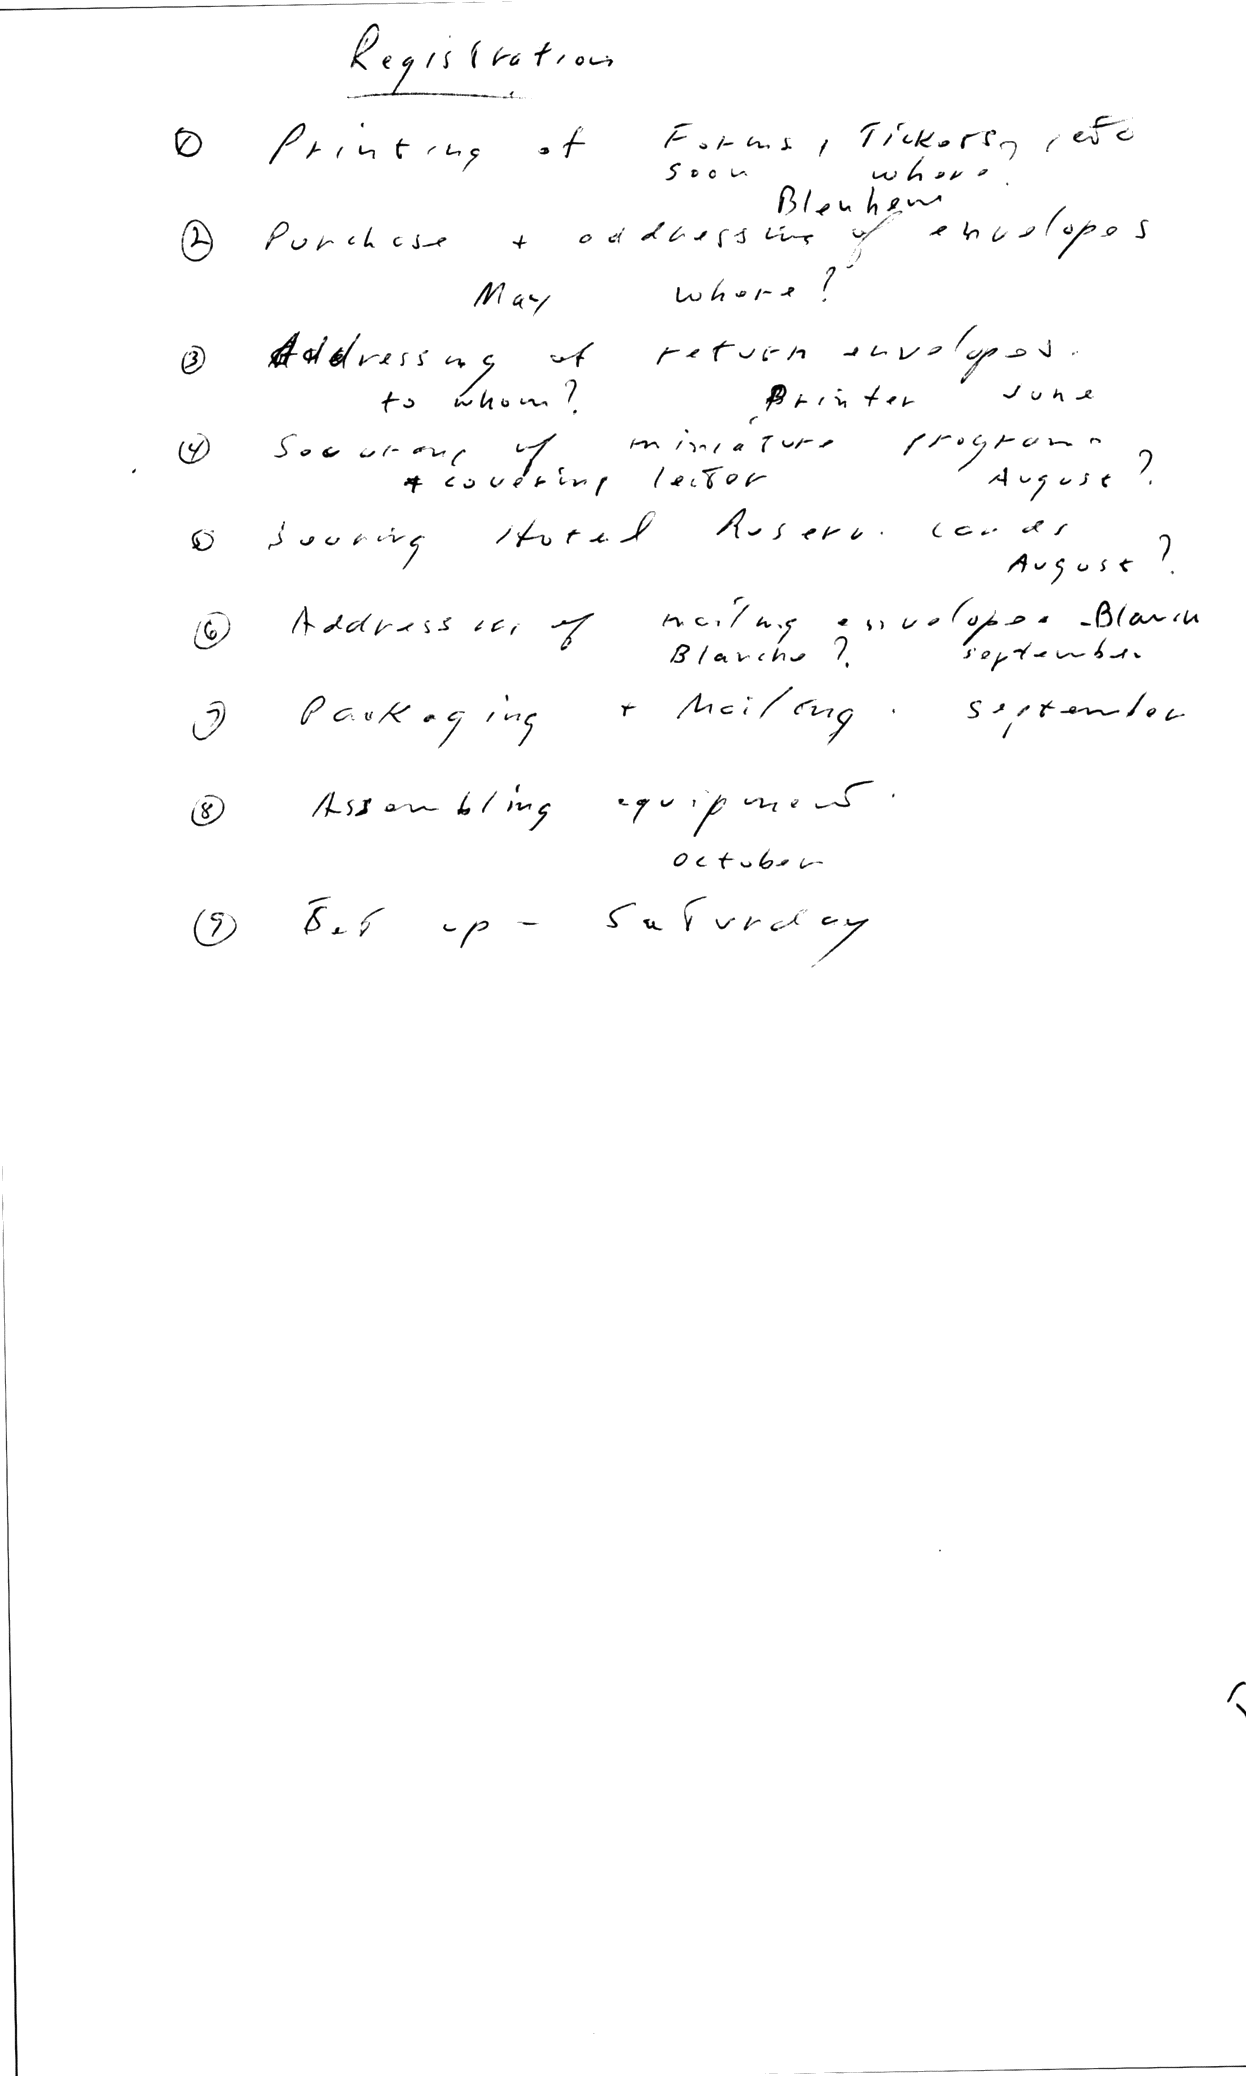 Registration
① Printing of Forms, Tickets, etc
soon where
Blenheim
② Purchase + addressing of envelopes
May where?
③ Addressing of return envelopes.
to whom? Printer June
④ Securing of miniature program
+ covering letter August?
⑤ Securing Hotel Reserv. cards
August?
⑥ Addressing of mailing envelopes - Blanch
Blanche? september
⑦ Packaging + Mailing. september
⑧ Assembling equipment.
october
⑨ Set up - Saturday